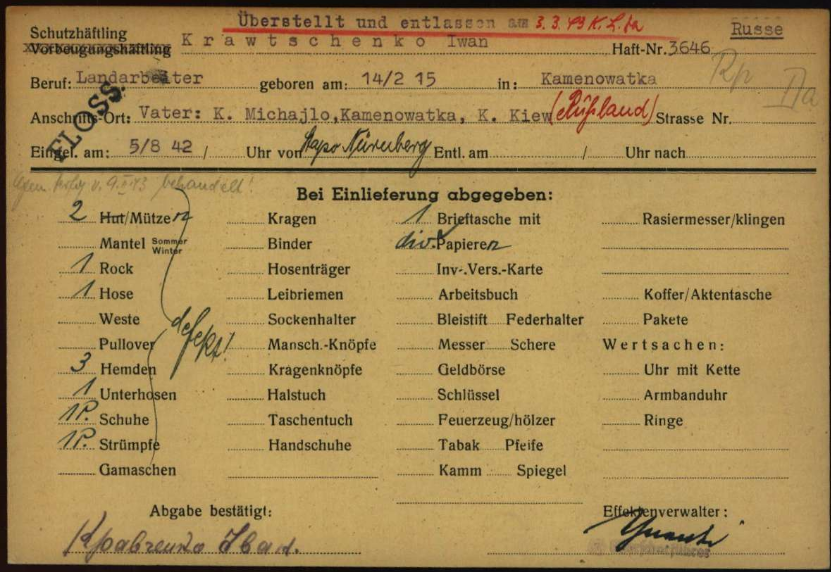 Überstellt und entlassen am 3.3.43 K.L.
Schutzhäftling
Vorbeugungshäftling Krawtschenko Iwan Haft-Nr. 3646 Russe
Beruf: Landarbeiter geboren am: 14/2 15 in: Kamenowatka
Rp IIa
FLOSS.
Anschrifts-Ort: Vater: K. Michajlo, Kamenowatka, K. Kiew (Rußland) Strasse Nr.
Eingel. am: 5/8 42 / Uhr von Stapo Nürnberg Entl. am / Uhr nach
v. 9.I.43 behandelt!
Bei Einlieferung abgegeben:
2 Hut/Mützen Kragen 1 Brieftasche mit Rasiermesser/klingen
Mantel Sommer Winter Binder div. Papieren
1 Rock Hosenträger Inv.-Vers.-Karte
1 Hose Leibriemen Arbeitsbuch Koffer/Aktentasche
Weste Sockenhalter Bleistift Federhalter Pakete
defekt!
Pullover Mansch.-Knöpfe Messer Schere Wertsachen:
3 Hemden Kragenknöpfe Geldbörse Uhr mit Kette
1 Unterhosen Halstuch Schlüssel Armbanduhr
1 P. Schuhe Taschentuch Feuerzeug/hölzer Ringe
1 P. Strümpfe Handschuhe Tabak Pfeife
Gamaschen Kamm Spiegel
Abgabe bestätigt: Effektenverwalter:
Кравченко Іван.